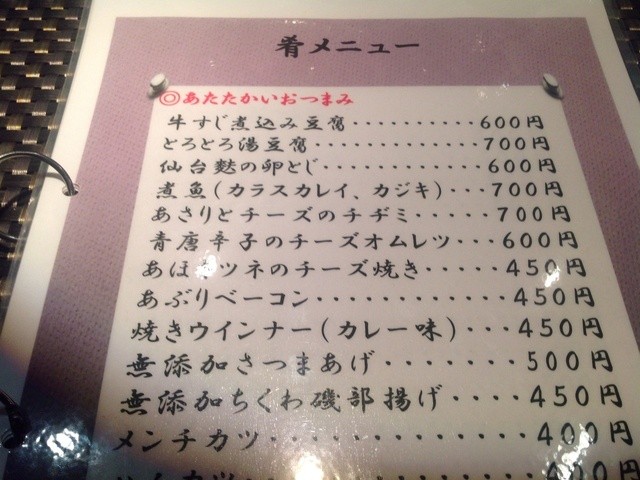 肴メニュー
◎あたたかいおつまみ
牛すじ煮込み豆腐・・・・・・・・・・・600円
とろとろ湯豆腐・・・・・・・・・・・・・700円
仙台麩の卵とじ・・・・・・・・・・・・・600円
煮魚(カラスカレイ、カジキ)・・・700円
あさりとチーズのチヂミ・・・・・・700円
青唐辛子のチーズオムレツ・・・600円
あほキツネのチーズ焼き・・・・・450円
あぶりベーコン・・・・・・・・・・・・450円
焼きウインナー(カレー味)・・・450円
無添加さつまあげ・・・・・・・・500円
無添加ちくわ磯部揚げ・・・・450円
メンチカツ・・・・・・・・・・・・・400円
ハムカツ・・・・・・・・・・・・・400円